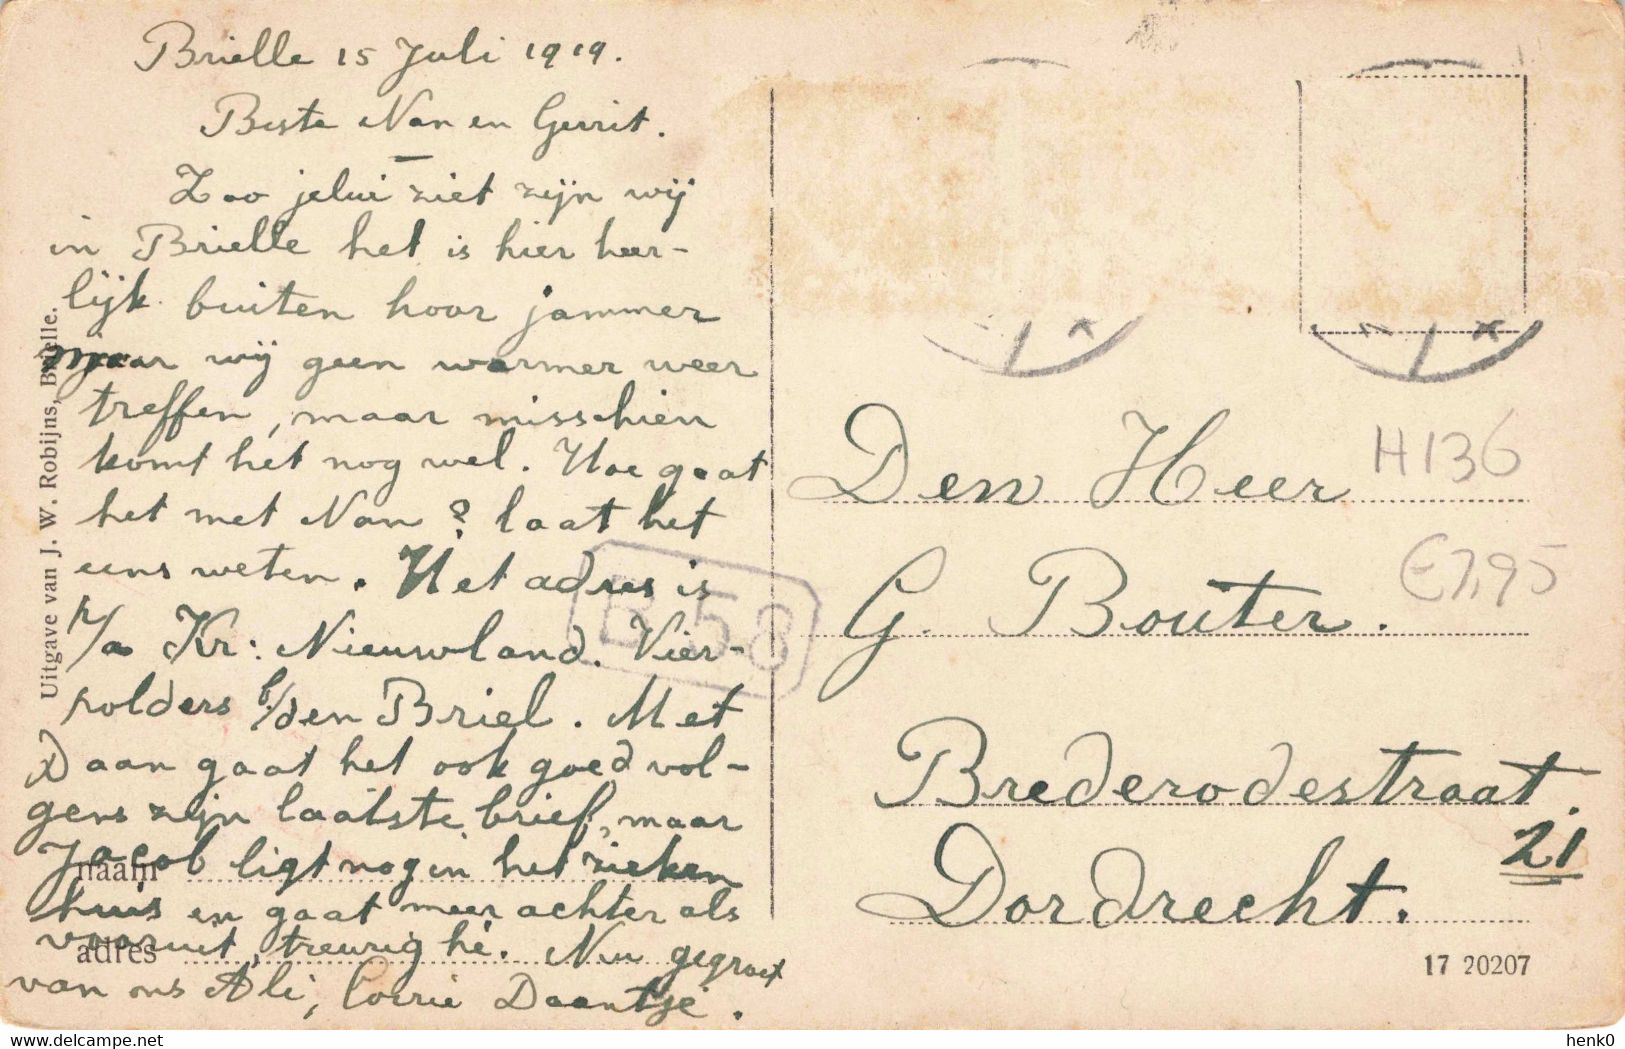 Brielle 15 Juli 1919.
Beste Nan en Gerrit.
Zoo jelui ziet zijn wij
in Brielle het is hier heer-
lijk buiten hoor jammer
maar wij geen warmer weer
treffen, maar misschien
komt het nog wel. Hoe gaat
het met Nan? laat het
eens weten. Het adres is
p/a Kr: Nieuwland. Vier-
polders b/den Briel. Met
Daan gaat het ook goed vol-
gens zijn laatste brief, maar
Jacob ligt nog in het zieken
huis en gaat meer achter als
vooruit, treurig hè. Nu gegroet
van ons Ali, Corrie Daantje.
Uitgave van J. W. Robijns, Brielle.
naam
adres
B 58
Den Heer
H136
G. Bouter.
€7,95
Brederodestraat.
21
Dordrecht.
17 20207
www.delcampe.net
henk0